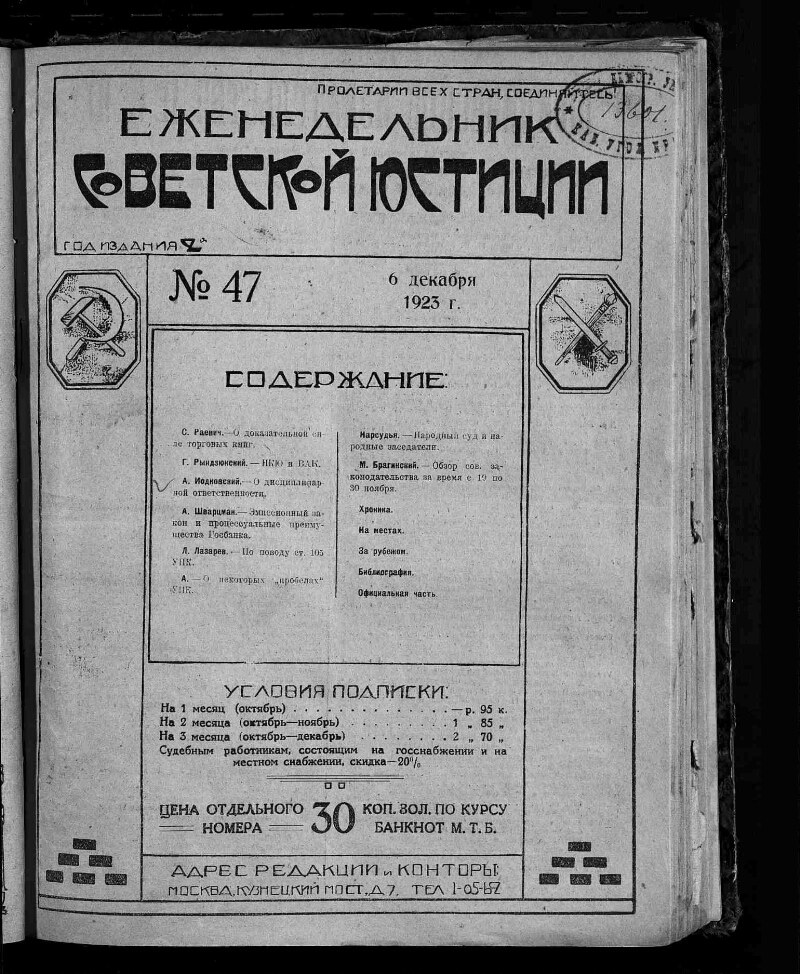 ПРОЛЕТАРИИ ВСЕХ СТРАН, СОЕДИНЯЙТЕСЬ!
ЕЖЕНЕДЕЛЬНИК
СОВЕТСКОЙ ЮСТИЦИИ
ГОД ИЗДАНИЯ 2й
13601.
№ 47
6 декабря
1923 г.
СОДЕРЖАНИЕ:
С. Раевич.—О доказательной си-
ле торговых книг.
Г. Рындзюнский.—НКЮ и ВАК.
А. Иодковский.—О дисциплинар-
ной ответственности.
А. Шварцман.—Эмиссионный за-
кон и процессуальные преиму-
щества Госбанка.
Л. Лазарев.—По поводу ст. 105
УПК.
А.—О некоторых „пробелах“
УПК.
Нарсудья.—Народный суд и на-
родные заседатели.
М. Брагинский.—Обзор сов. за-
конодательства за время с 19 по
30 ноября.
Хроника.
На местах.
За рубежом.
Библиография.
Официальная часть.
УСЛОВИЯ ПОДПИСКИ:
На 1 месяц (октябрь) . . . . . . . . . . . . . . —р. 95 к.
На 2 месяца (октябрь—ноябрь) . . . . . . . . . 1 „ 85 „
На 3 месяца (октябрь—декабрь) . . . . . . . . 2 „ 70 „
Судебным работникам, состоящим на госснабжении и на
местном снабжении, скидка—20%
ЦЕНА ОТДЕЛЬНОГО НОМЕРА 30 КОП. ЗОЛ. ПО КУРСУ
БАНКНОТ М. Т. Б.
АДРЕС РЕДАКЦИИ и КОНТОРЫ:
МОСКВА, КУЗНЕЦКИЙ МОСТ, Д 7, ТЕЛ 1-05-87